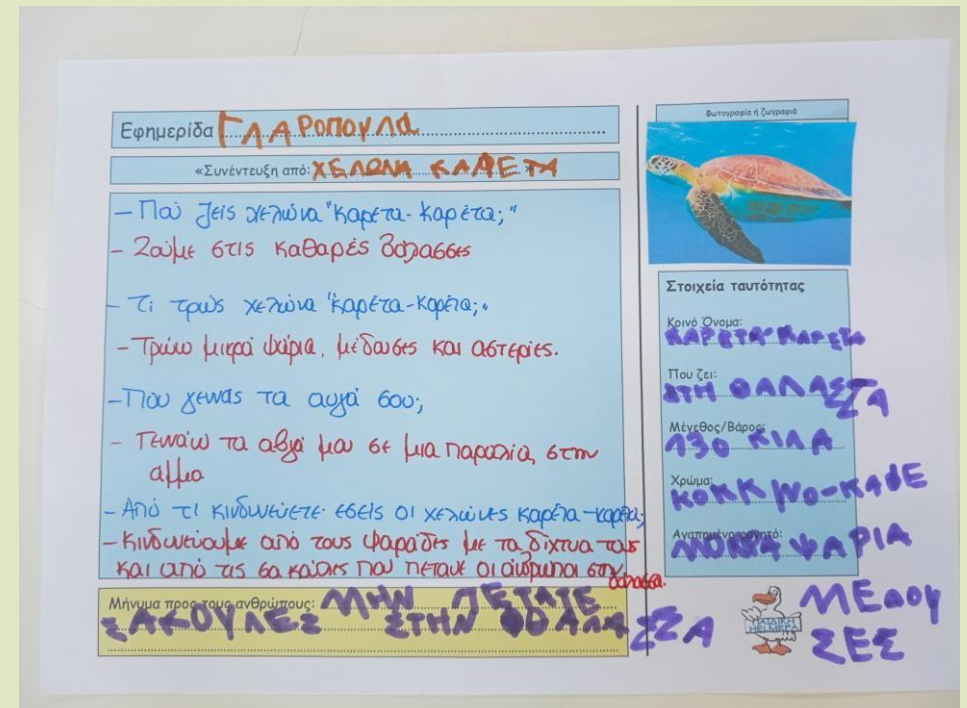 Εφημερίδα ΓΛΑΡΟΠΟΥΛΑ
«Συνέντευξη από: ΧΕΛΩΝΑ ΚΑΡΕΤΑ »
– Πού ζεις χελώνα "καρέτα-καρέτα;"
– Ζούμε στις καθαρές θάλασσες
– Τι τρώς χελώνα "καρέτα-καρέτα;"
– Τρώω μικρά ψάρια, μέδουσες και αστερίες.
– Που γεννάς τα αυγά σου;
– Γεννάω τα αβγά μου σε μια παραλία, στην
άμμο
– Από τι κινδυνεύετε εσείς οι χελώνες καρέτα-καρέτα;
– Κινδυνεύουμε από τους ψαράδες με τα δίχτυα τους
και από τις σακούλες που πετάνε οι άνθρωποι στην
θάλασσα.
Μήνυμα προς τους ανθρώπους: ΜΗΝ ΠΕΤΑΤΕ
ΣΑΚΟΥΛΕΣ ΣΤΗΝ ΘΑΛΑΣΣΑ
Φωτογραφία ή ζωγραφιά
Στοιχεία ταυτότητας
Κοινό Όνομα:
ΚΑΡΕΤΑ-ΚΑΡΕΤΑ
Που ζει:
ΣΤΗ ΘΑΛΑΣΣΑ
Μέγεθος/Βάρος:
130 ΚΙΛΑ
Χρώμα:
ΚΟΚΚΙΝΟ-ΚΑΦΕ
Αγαπημένο φαγητό:
ΨΑΡΙΑ
ΜΕΔΟΥ
ΣΕΣ